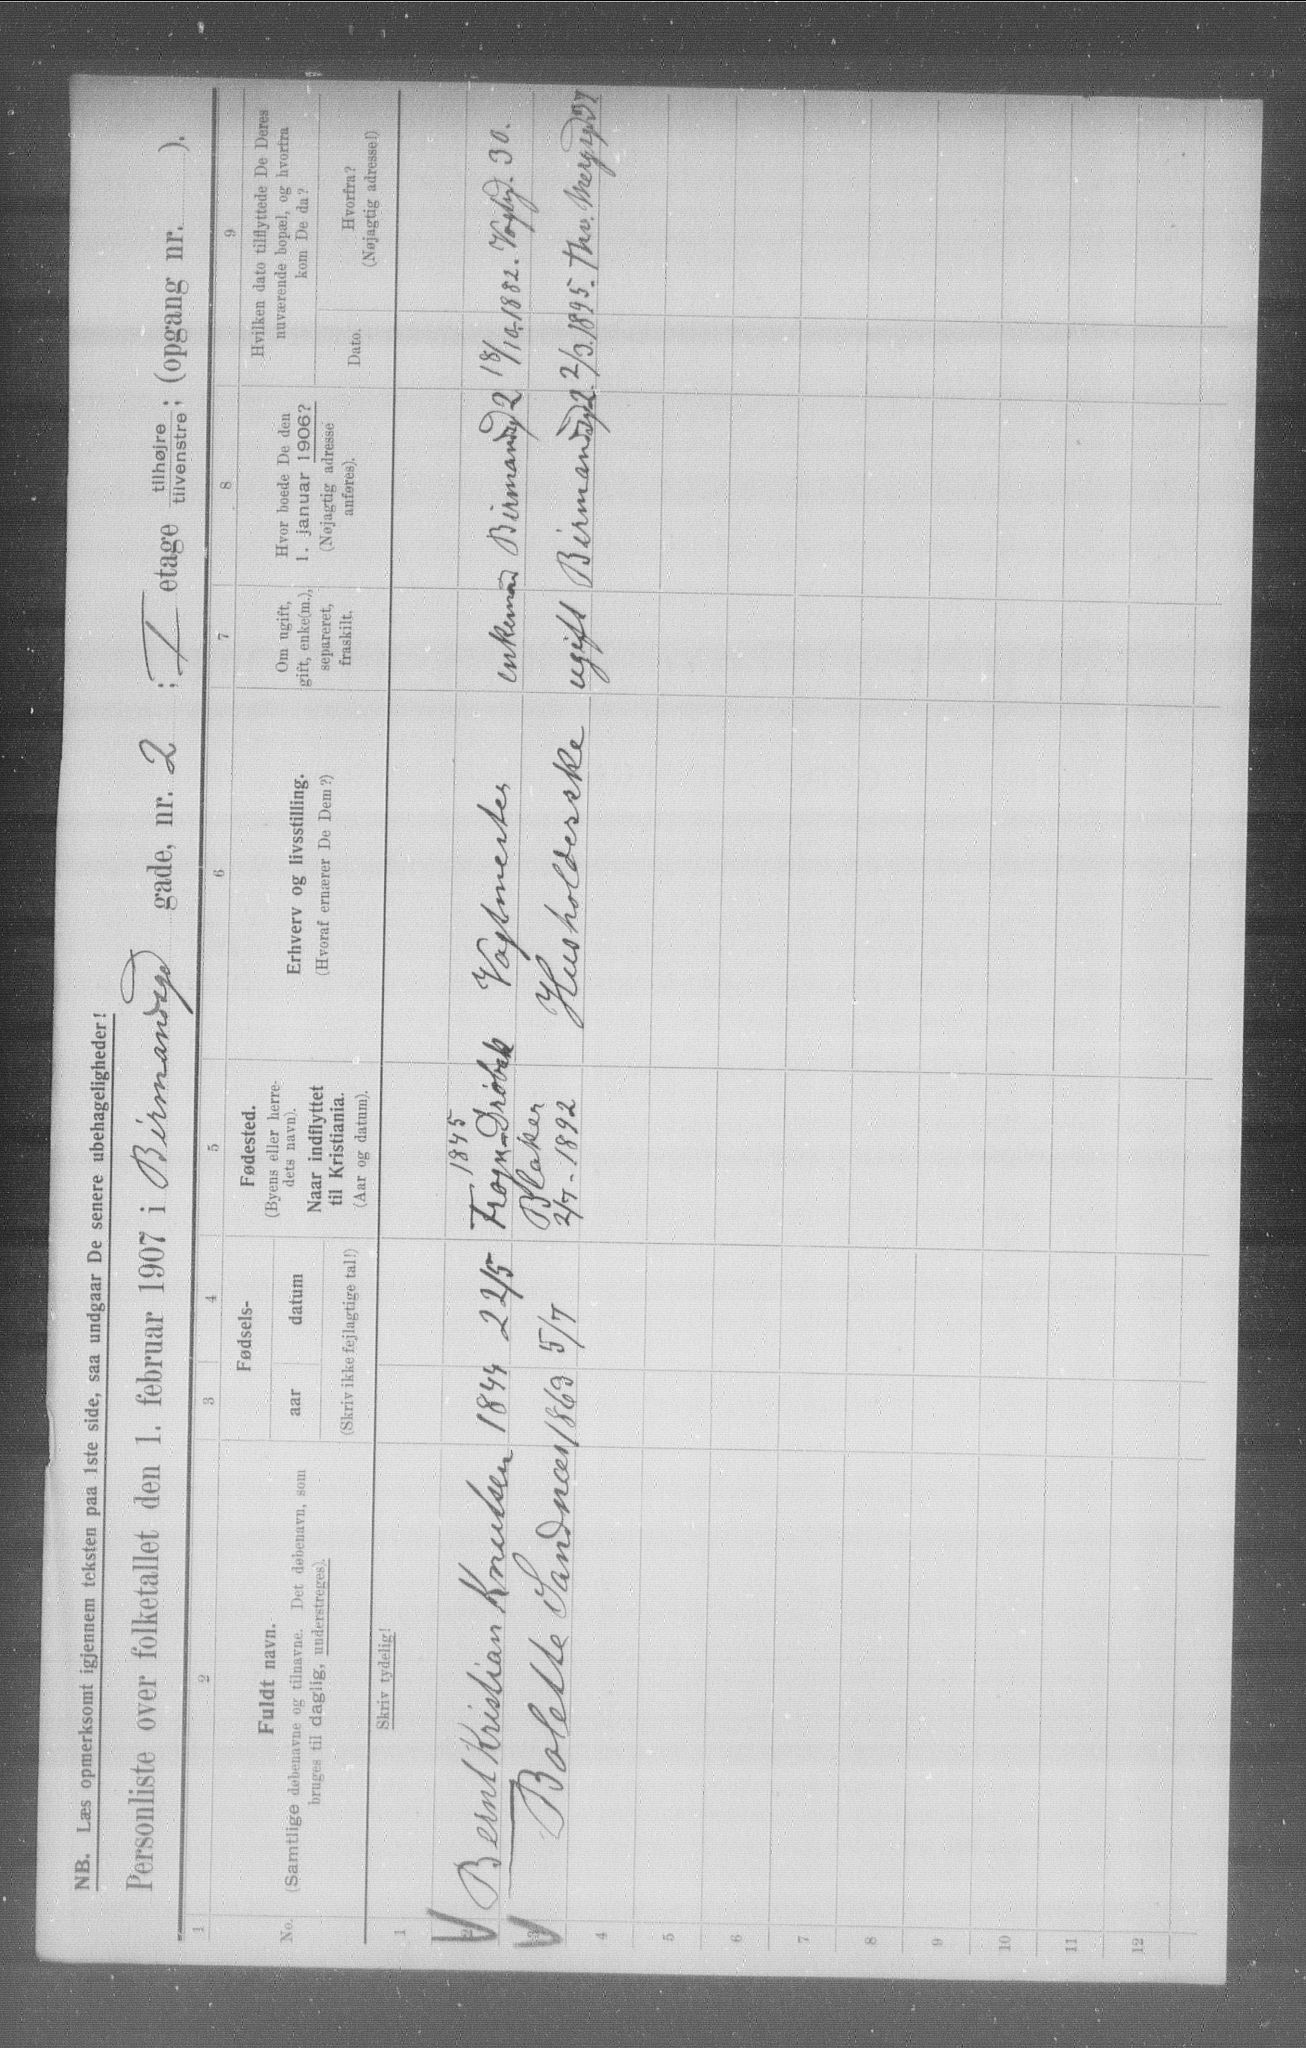 NB. Læs opmerksomt igjennem teksten paa 1ste side, saa undgaar De senere ubehageligheder!
Personliste over folketallet den 1. februar 1907 i Birmandsgd gade, nr. 2 ; I etage tilhøjre tilvenstre; (opgang nr. ).
1 2 3 4 5 6 7 8 9
No.
Fuldt navn.
(Samtlige døbenavne og tilnavne. Det døbenavn, som
bruges til daglig, understreges).
Skriv tydelig!
Fødsels-
aar datum
(Skriv ikke fejlagtige tal!)
Fødested.
(Byens eller herre-
dets navn).
Naar indflyttet
til Kristiania.
(Aar og datum).
Erhverv og livsstilling.
(Hvoraf ernærer De Dem?)
Om ugift,
gift, enke(m.),
separeret,
fraskilt.
Hvor boede De den
1. januar 1906?
(Nøjagtig adresse
anføres).
Hvilken dato tilflyttede De Deres
nuværende bopæl, og hvorfra
kom De da?
Dato.
Hvorfra?
(Nøjagtig adresse!)
1
1845
2 Bernt Kristian Knutsen 1844 22/5 Frogn-Drøbak Vogtmester enkemand Birmandsgd 2 18/10.1882. Vogtgd. 30.
3 Bolette Sandnæs 1863 5/7 Blaker Husholderske ugift Birmandsgd 2. 2/3.1895. Thv. Meyersgd 37
2/7-1892
4
5
6
7
8
9
10
11
12